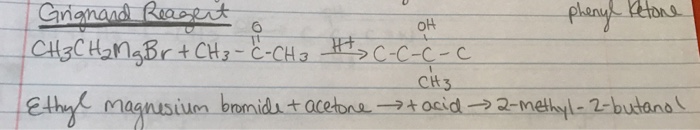 Grignard Reagent
phenyl Ketone
O
OH
CH3CH2MgBr + CH3-C-CH3 H+→ C-C-C-C
CH3
Ethyl magnesium bromide + acetone → + acid → 2-methyl-2-butanol